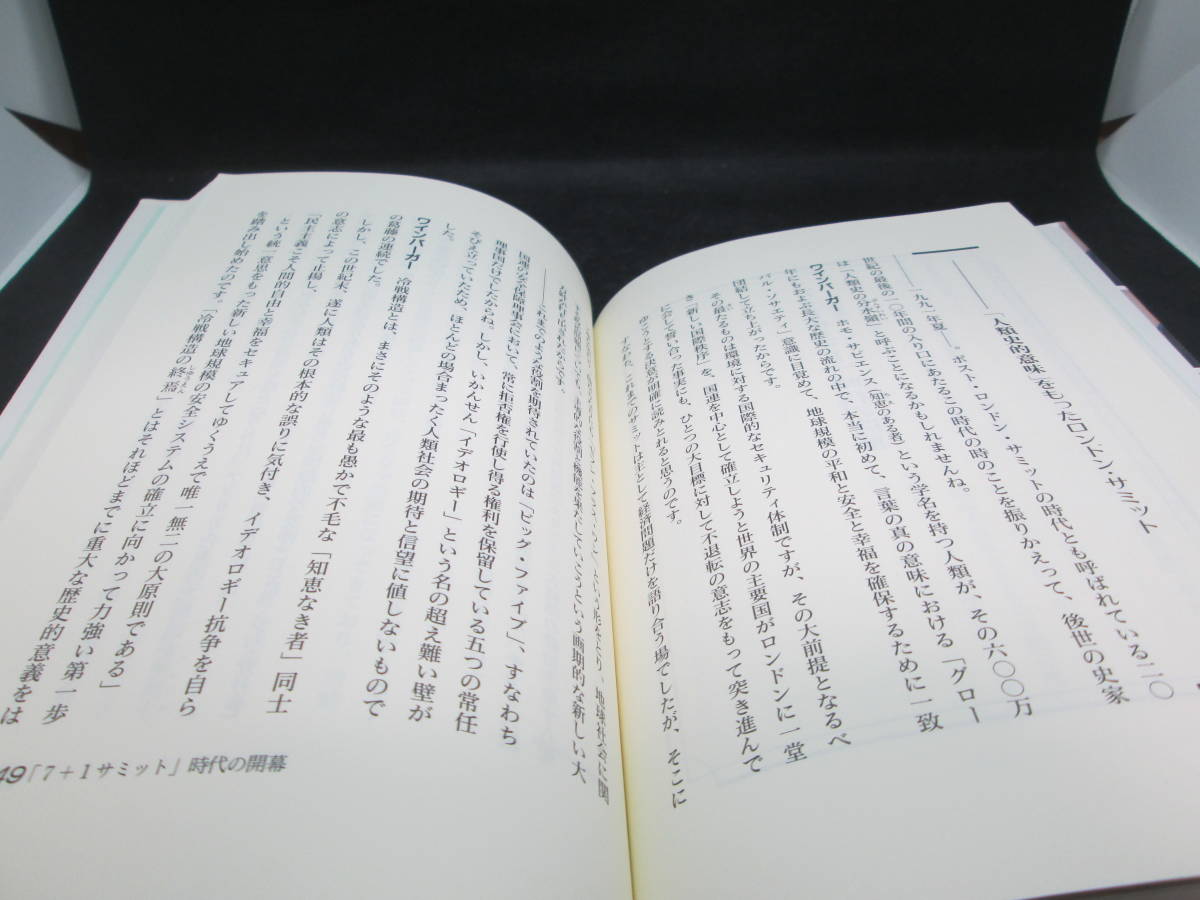 「人類史的意味」をもったロンドン・サミット
――一九九一年夏――。ポスト・ロンドン・サミットの時代とも呼ばれている二〇
世紀の最後の一〇年間の入り口にあたるこの時代の時のことを振りかえって、後世の史家
は「人類史の分水嶺」と呼ぶことになるかもしれませんね。
ワインバーガー ホモ・サピエンス（知恵のある者）という学名を持つ人類が、その六〇〇万
年にもおよぶ長大な歴史の流れの中で、本当に初めて、言葉の真の意味における「グロー
バル・ソサエティ」意識に目覚めて、地球規模の平和と安全と幸福を確保するために一致
団結して立ち上がったからです。
その最たるものは環境に対する国際的なセキュリティ体制ですが、その大前提となるべ
き「新しい国際秩序」を、国連を中心として確立しようと世界の主要国がロンドンに一堂
に会して誓い合った事実にも、ひとつの大目標に対して不退転の意志をもって突き進んで
ゆこうとする決意が明確に読みとれると思うのです。
すなわち、これまでのサミットは主として経済問題だけを語り合う場でしたが、そこに
地球社会に関
という画期的な新しい大
――これまでそのような役割を期待されていたのは「ビッグ・ファイブ」、すなわち
国連の安全保障理事会において、常に拒否権を行使し得る権利を保留している五つの常任
理事国だけでしたからね。しかし、いかんせん「イデオロギー」という名の超え難い壁が
そびえ立っていたため、ほとんどの場合まったく人類社会の期待と信望に値しないもので
した。
ワインバーガー 冷戦構造とは、まさにそのような最も愚かで不毛な「知恵なき者」同士
の葛藤の連続でした。
しかし、この世紀末、遂に人類はその根本的な誤りに気付き、イデオロギー抗争を自ら
の意志によって止揚し、
「民主主義こそ人間的自由と幸福をセキュアしてゆくうえで唯一無二の大原則である」
という統一意思をもった新しい地球規模の安全システムの確立に向かって力強い第一歩
を踏み出し始めたのです。「冷戦構造の終焉」とはそれほどまでに重大な歴史的意義をは
49「7＋1サミット」時代の開幕